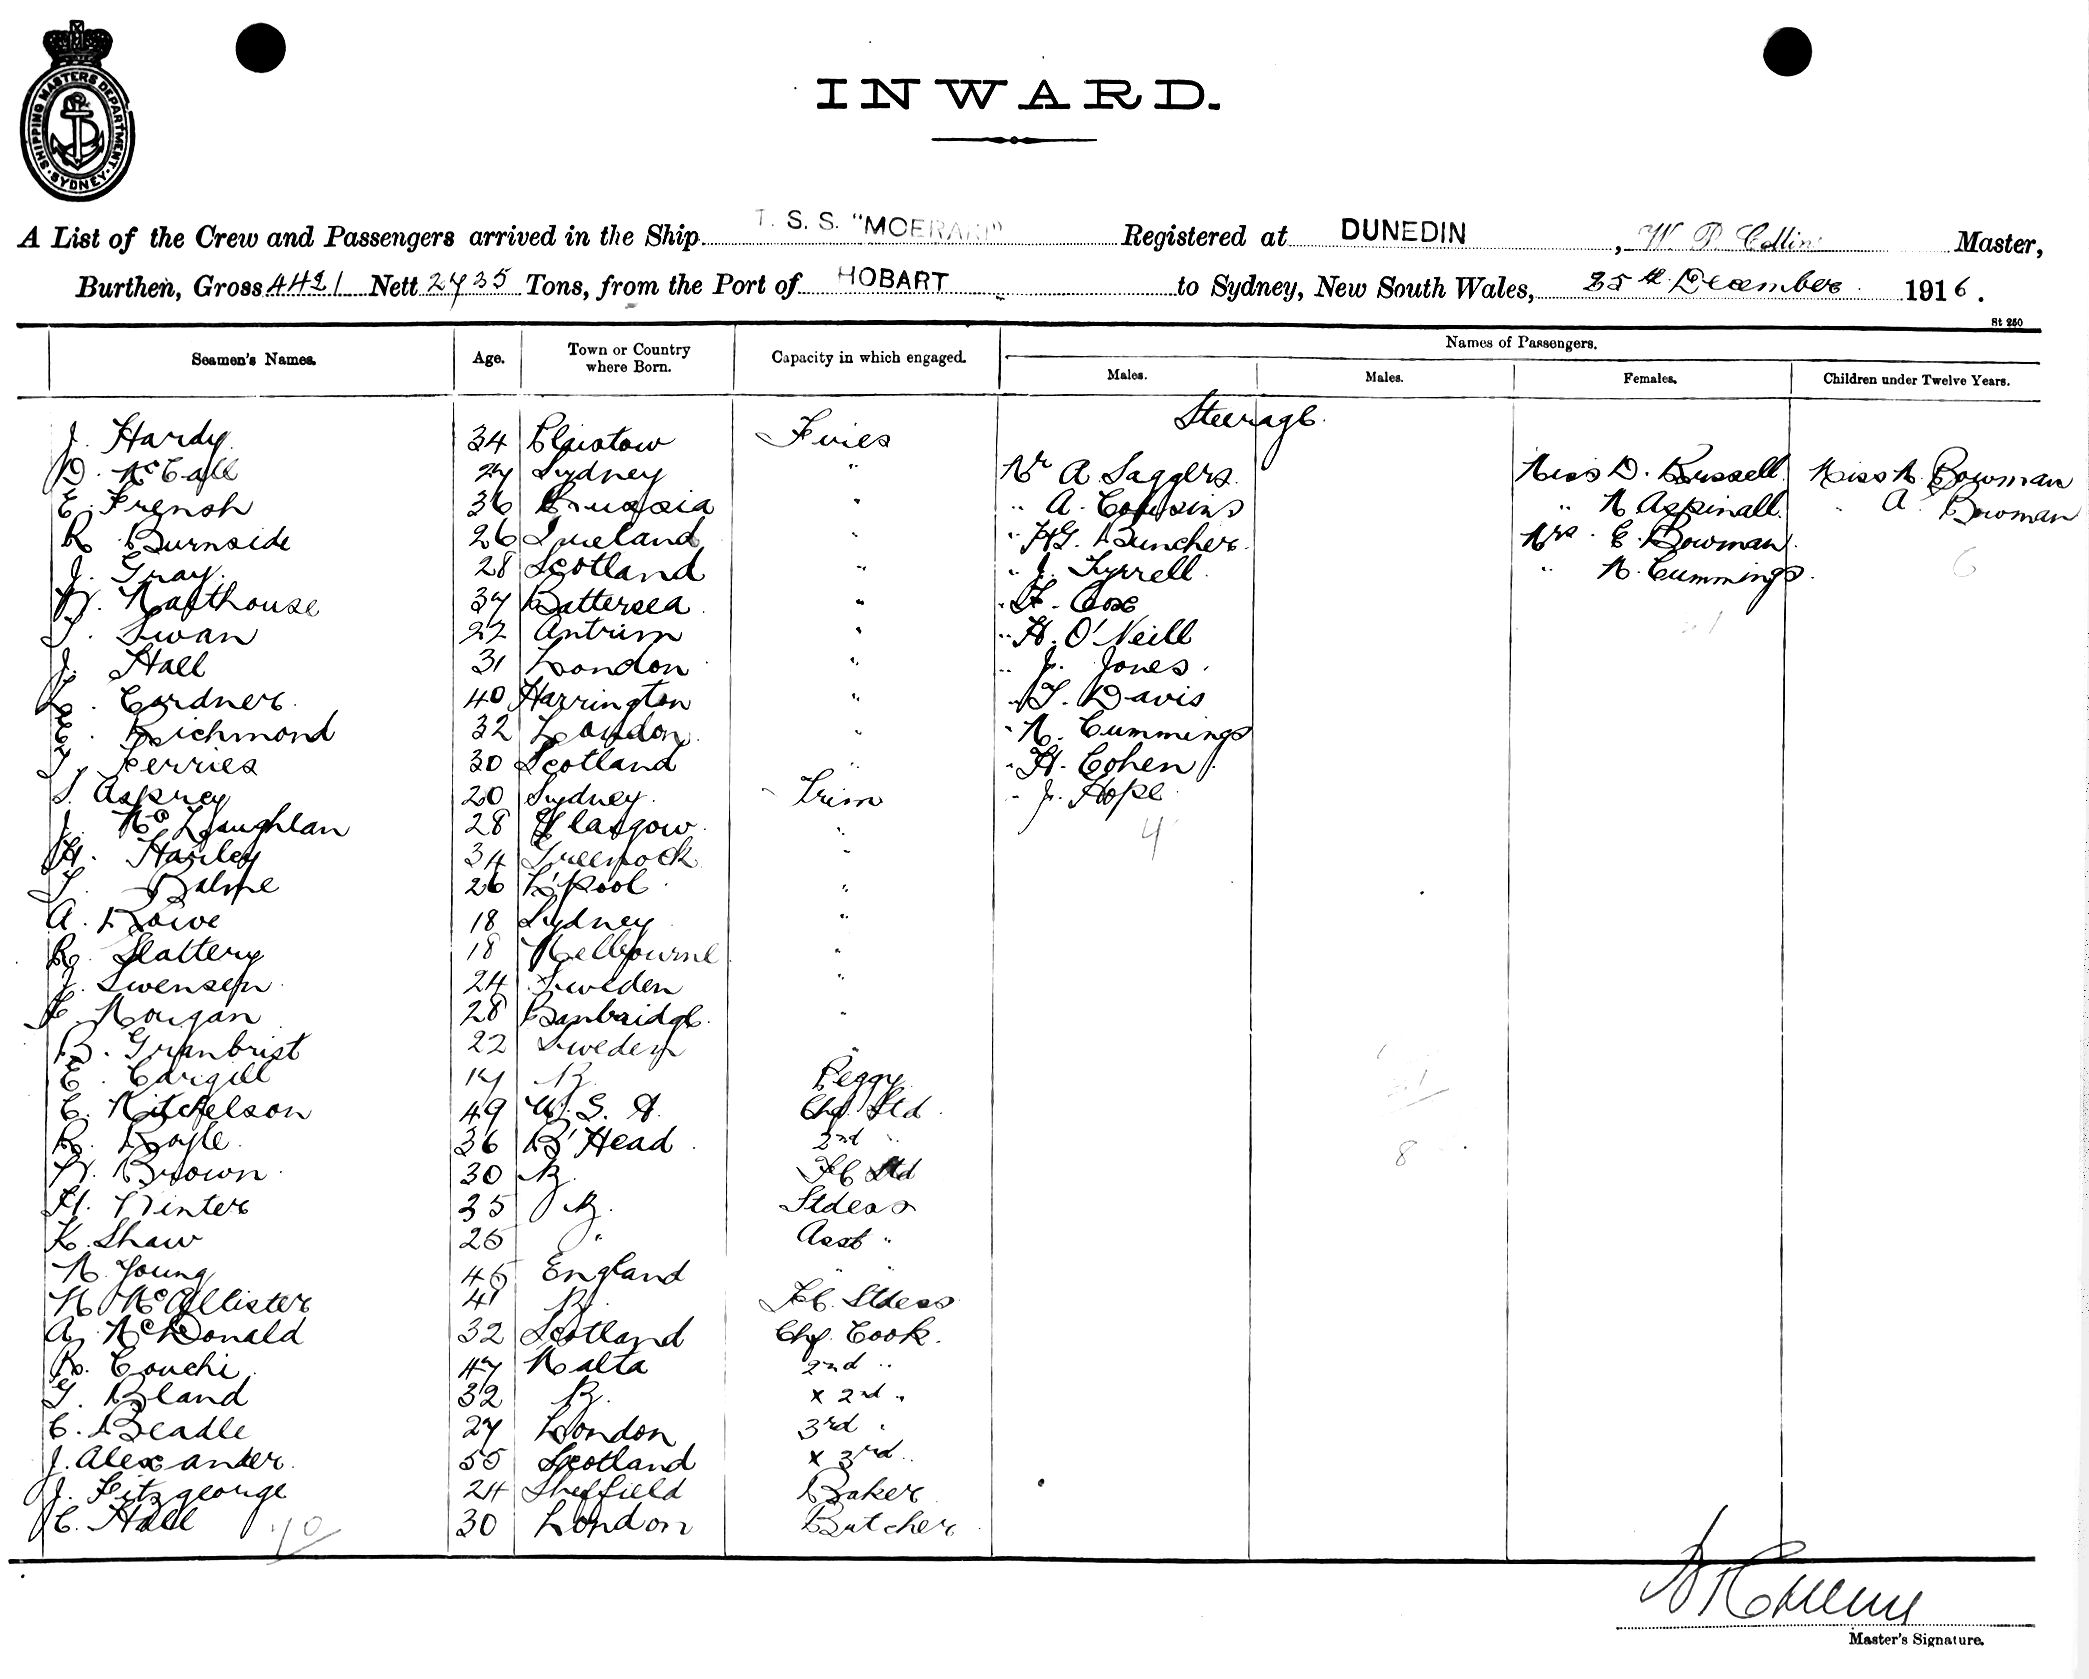 SHIPPING MASTERS DEPARTMENT
SYDNEY
INWARD.
A List of the Crew and Passengers arrived in the Ship T. S. S. "MOERAKI" Registered at DUNEDIN, W. P. Collin Master,
Burthen, Gross 4421 Nett 2435 Tons, from the Port of HOBART to Sydney, New South Wales, 25th December 1916.
St 250
Seamen's Names. Age. Town or Country where Born. Capacity in which engaged. Names of Passengers.
Males. Males. Females. Children under Twelve Years.
Steerage
J. Hardy 34 Plaistow Fires
D. McCall 27 Sydney " Mr A Saggers Miss D. Russell Miss M Bowman
E. French 36 Russia " " A. Cousins " M Aspinall " A Bowman
R Burnside 26 Ireland " " HG. Buncher Mrs E. Bowman
J. Gray 28 Scotland " " J. Tyrrell " M. Cummings
W. Malthouse 37 Battersea " " F. Cox
T. Swan 22 Antrim " " H. O'Neill
J. Hall 31 London " " J. Jones
L. Cordner 40 Harrington " " T. Davis
E. Richmond 32 London " " M. Cummings
T. Ferries 30 Scotland " " H. Cohen
S. Asprey 20 Sydney Trim " J. Hope
J. McLaughlan 28 Glasgow "
H. Hanley 34 Greenock "
T. Balme 26 L'pool "
A. Rowe 18 Sydney "
R. Slattery 18 Melbourne "
J. Swensen 24 Sweden "
F. Morgan 28 Banbridge "
B. Granbrist 22 Sweden "
E. Cargill 17 Z. Peggy
C. Mitchelson 49 U. S. A. Chf Std
R. Boyle 36 B'Head 2nd "
W. Brown 30 Z. FC Std
H. Winter 35 Z. Stdess
K. Shaw 25 " Asst "
M. Young 45 England " "
M McAllister 41 Z. FC. Stdess
A. McDonald 32 Scotland Chf. Cook.
R. Couchi 47 Malta 2nd "
G. Bland 32 Z. x 2nd "
C. Beadle 27 London 3rd "
J. Alexander 55 Scotland x 3rd "
J. Fitzgeorge 24 Sheffield Baker
C. Hall 30 London Butcher
Master's Signature.